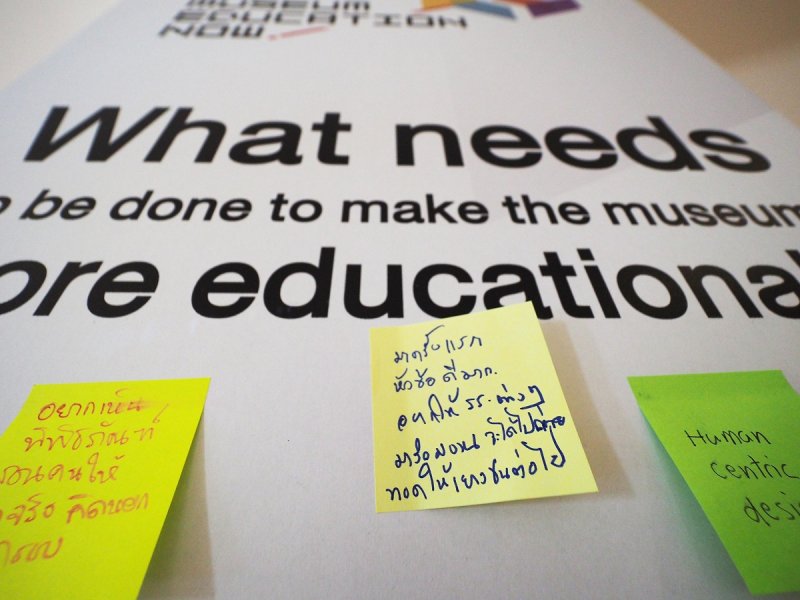 MUSEUM
EDUCATION
NOW!
What needs
be done to make the museum
ore educational
อยากเห็น
พิพิธภัณฑ์
สอนคนให้
จริง คิดนอก
กรอบ
มาครั้งแรก
หัวข้อดีมาก.
อยากให้ รร. ต่างๆ
จะได้ไป
ทอดให้เยาวชนต่อไป
Human
centric
desi